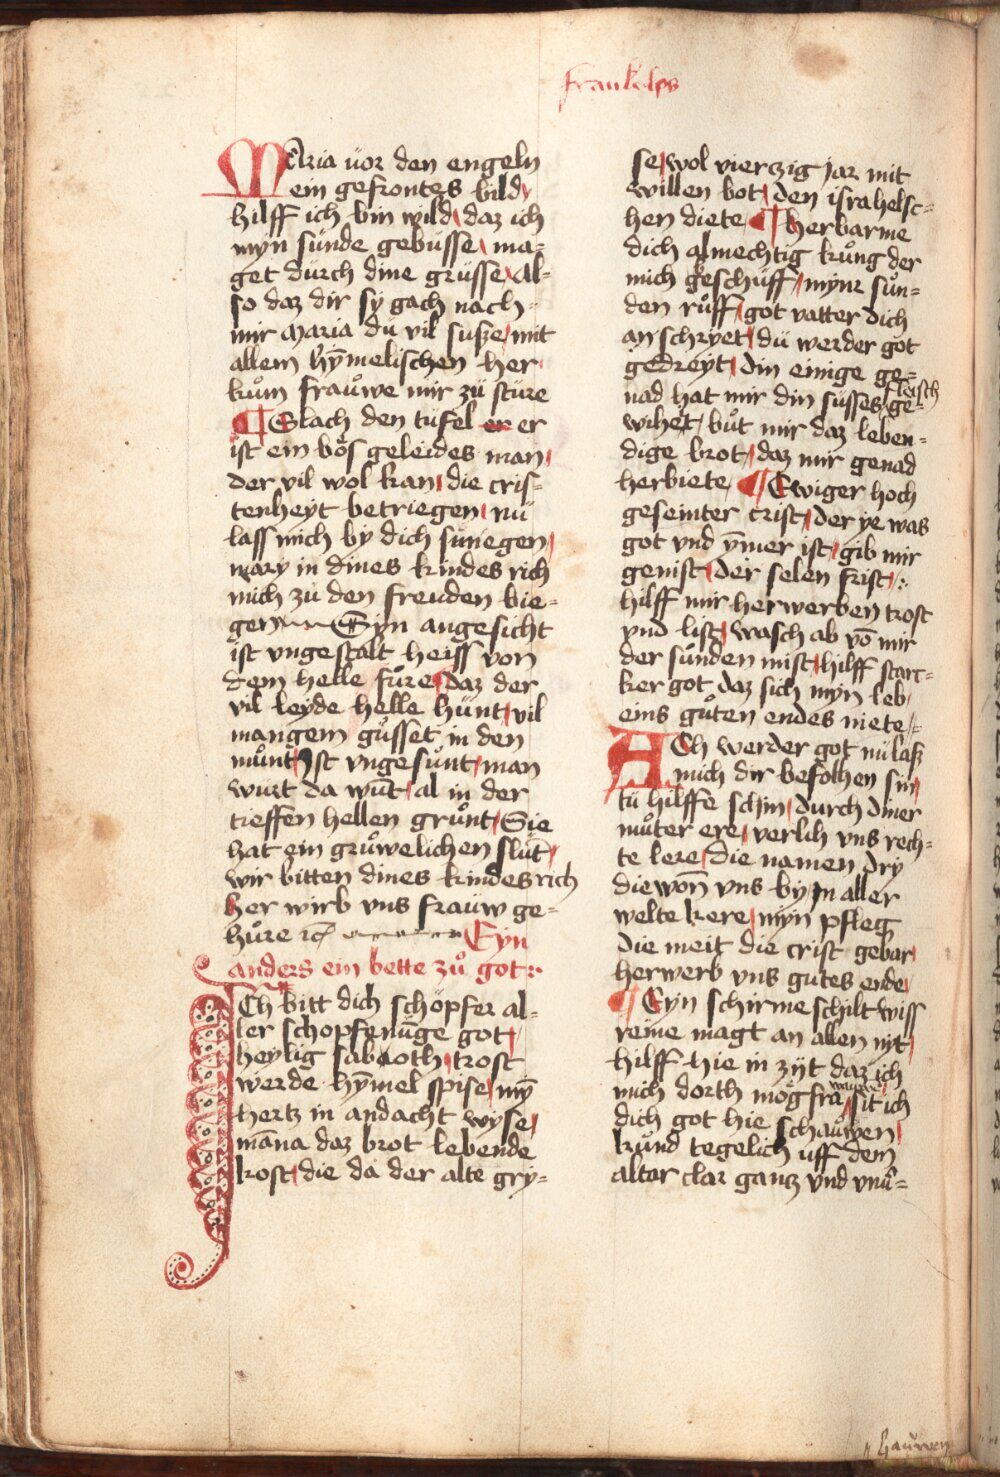 Frankclps
MAria vor den engeln
ein gefrontes bild
hilff ich bin wild daz ich
myn sünde gebüsse ma=
get dürch dine grüsse Al=
so daz dir sy gach nach
mir maria dü vil süsze mit
allem hȳmelischen her
kům fraůwe mir zü stüre
Slach den tüfel er er
ist ein bös geleides man
der vil wol kan die cris=
tenheyt betriegen nü
lass mich by dich sünegen
mary in dines kindes rich
mich zü den freuden bie=
gen Syn angesicht
ist vngestalt heiss von
dem helle fůre Daz der
vil leyde helle hünt vil
mangem gůsset in den
můnt Ist vngesůnt man
würt da wūt al in der
tieffen hellen grůnt Sie
hat ein grůwelichen slūt
wir bitten dines kindes rich
her wirb vns fraüw ge=
hůre ic̄ Eyn
anders ein bette zů got
ICh bitt dich schöpfer al=
ler schopfenūge got
heylig sabaoth trost
werde hȳmel spise mȳ
hertz in andacht wyse
māna daz brot lebende
kost die da der alte gry=
se wol vierzig jar mit
willen bot den israhelsc=
hen diete herbarme
dich almechtig kůng der
mich geschüff mynr sůn=
den růff got vatter dich
an schryet dü werder got
gedreyt din einige ge=
nad hat mir din süsses fleisch ge=
wihet bůt mir daz leben=
dige brot daz mir genad
herbiete Ewiger hoch
geseinter crist der ye was
got vnd ȳmer ist gib mir
genist der selen frist
hilff mir herwerben trost
vnd list wasch ab vō mir
der sůnden mist hilff starc=
ker got daz sich myn leb
eins gůten endes niete
ACh werder got nü lasz
mich dir befolhen sin
tü hilffe schin dürch diner
můter ere verlih vns rech=
te lere die namen dry
die won̄ vns by jn aller
welte kere myn pfleg
die meit die crist gebar
herwerb vns gütes ende
Eyn schirme schilt wiss
reine magt an allen nyt
hilff hie in zijt daz ich
mich dorth mög fra sit ich
dich got hie schaůwen
kůnd tegelich uff dem
altar clar gantz vnd vnū=
hauwen